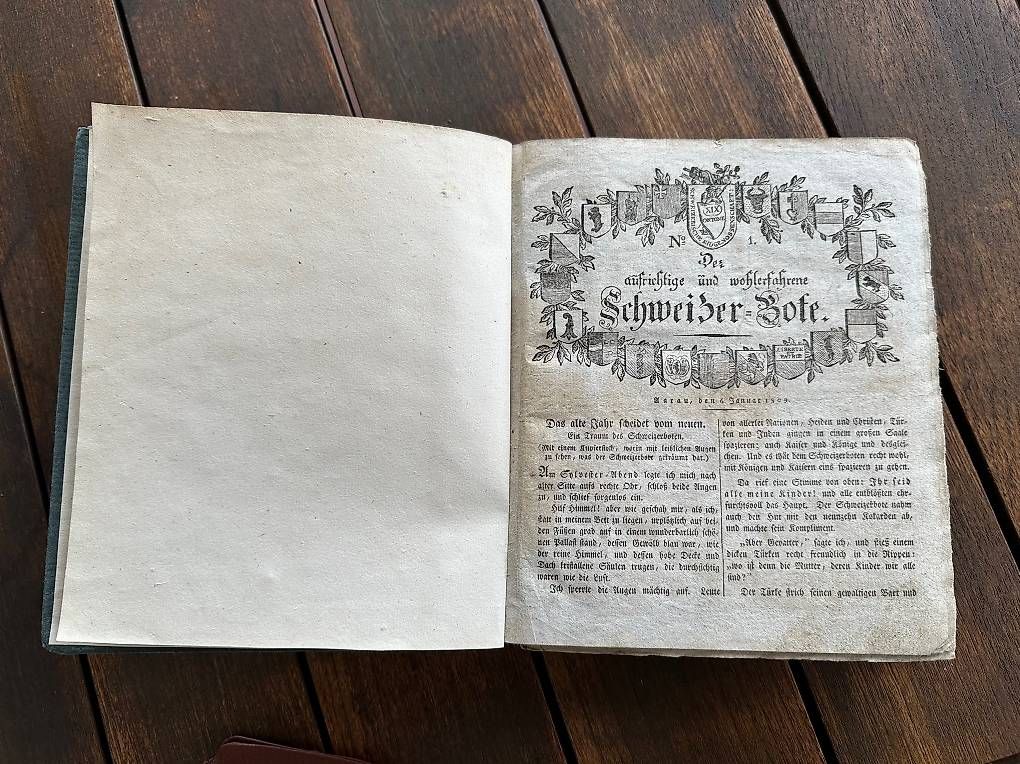 XIX
CANTONE
No 1.
Der
aufrichtige und wohlerfahrene
Schweizer-Bote.
LIBERTÉ
PATRIE
Aarau, den 6. Januar 1809.
Das alte Jahr scheidet vom neuen.
Ein Traum des Schweizerboten.
(Mit einem Kupferstich, worin mit leiblichen Augen
zu sehen, was der Schweizerbote geträumt hat.)
Am Sylvester-Abend legte ich mich nach
alter Sitte aufs rechte Ohr, schloß beide Augen
zu, und schlief sorgenlos ein.
Hilf Himmel! aber wie geschah mir, als ich,
statt in meinem Bett zu liegen, urplötzlich auf bei-
den Füßen grad auf in einem wunderbarlich schö-
nen Pallast stand, dessen Gewölb blau war, wie
der reine Himmel, und dessen hohe Decke und
Dach kristallene Säulen trugen, die durchsichtig
waren wie die Luft.
Ich sperrte die Augen mächtig auf. Leute
von allerlei Nationen, Heiden und Christen, Tür-
ken und Juden gingen in einem großen Saale
spazieren; auch Kaiser und Könige und desglei-
chen. Und es thät dem Schweizerboten recht wohl,
mit Königen und Kaisern eins spazieren zu gehen.
Da rief eine Stimme von oben: Ihr seid
alle meine Kinder! und alle entblößten ehr-
furchtsvoll das Haupt. Der Schweizerbote nahm
auch den Hut mit den neunzehn Kokarden ab,
und machte sein Kompliment.
„Aber Gevatter," sagte ich, und stieß einem
dicken Türken recht freundlich in die Rippen:
„wo ist denn die Mutter, deren Kinder wir alle
sind?"
Der Türke strich seinen gewaltigen Bart und